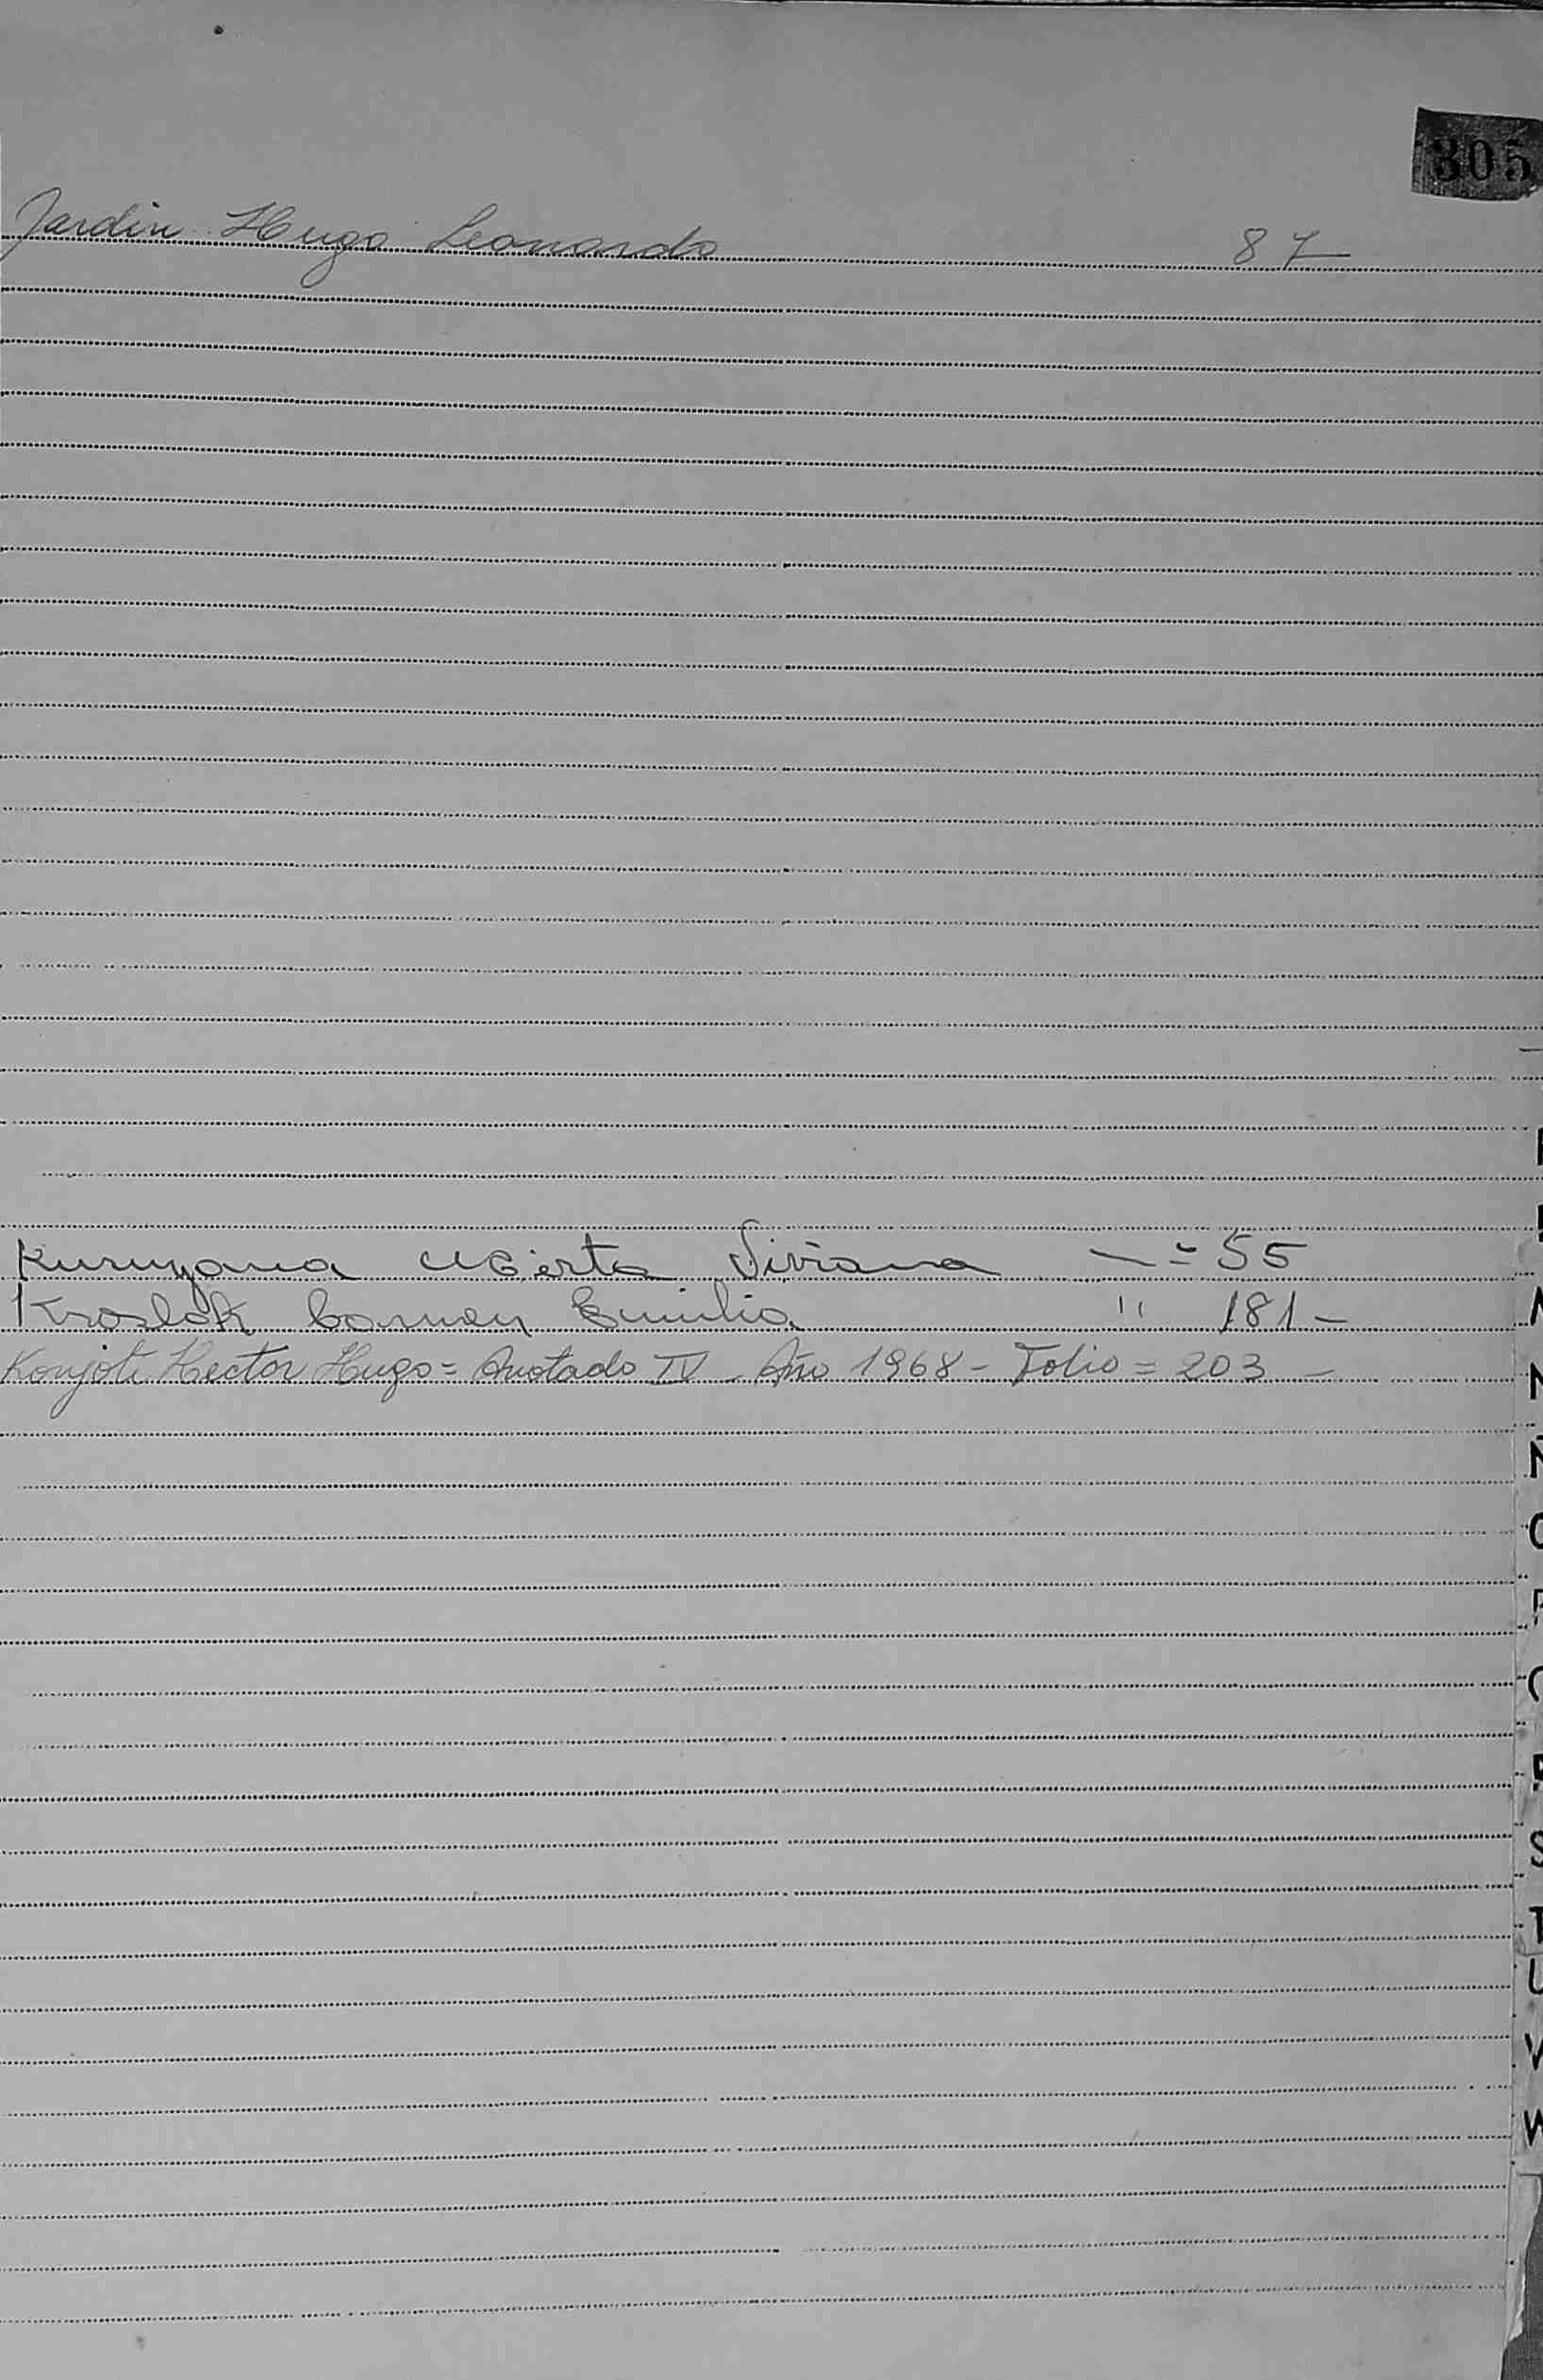 305
Jardin Hugo Leonardo 87
Kuruyama Mirta Viviana — = 55
Kroslak Carmen Emilia " 181 -
Konjoti Hector Hugo = Anotado IV - Año 1968 - Folio = 203 -
N
Ñ
O
P
Q
R
S
T
U
V
W